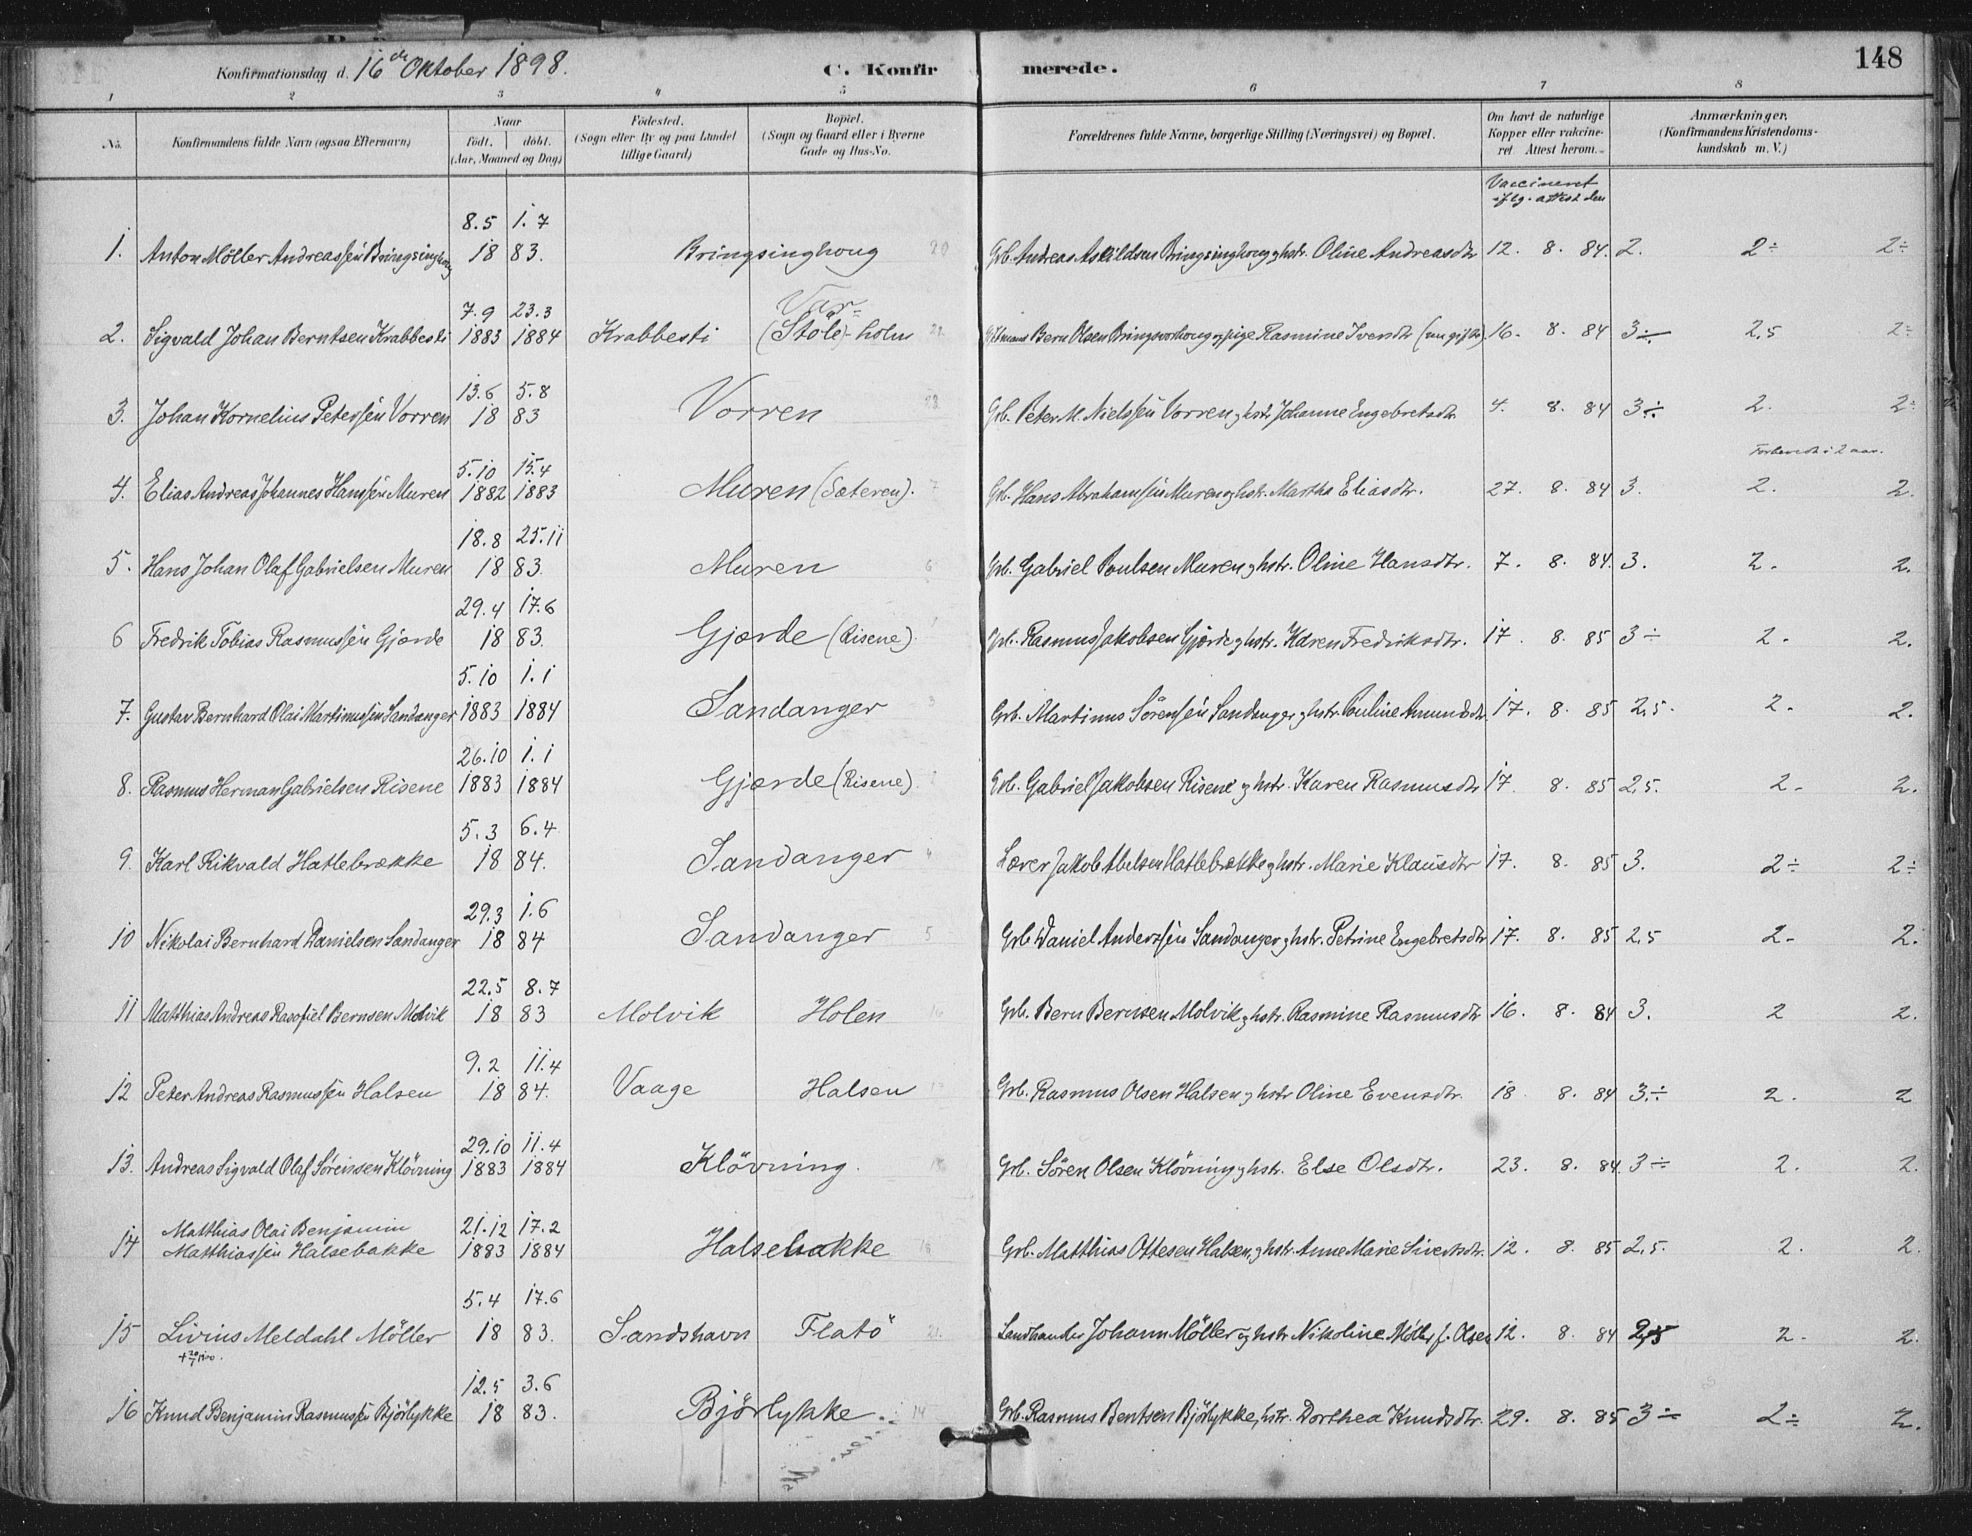 Konfirmationsdag d. 16de Oktober 1898. C. Konfirmerede. 148
1 2 3 4 5 6 7 8
No. Konfirmandens fulde Navn (ogsaa Efternavn) Naar født. døbt. (Aar, Maaned og Dag) Fødested. (Sogn eller By og paa Landet tillige Gaard) Bopæl. (Sogn og Gaard eller i Byerne Gade og Hus-No. Forældrenes fulde Navne, borgerlige Stilling (Næringsvei) og Bopæl. Om havt de naturlige Kopper eller vakcineret. Attest herom. Anmærkninger, (Konfirmandens Kristendomskundskab m. V.)
Vaccineret iflg. attest den
8.5 1.7
1. Anton Möller Andreassen Bringsinghoug 18 83. Bringsinghoug 20 Grb. Andreas Askildsen Bringsinghoug & hstr. Oline Andreasdtr 12. 8. 84. 2. 2÷ 2÷
7.9 23.3 Var-
2. Sigvald Johan Berntsen Krabbesti 1883 1884 Krabbesti (Støle)-holm Bern Olsen pige Rasmine Iversdtr 16. 8. 84 3÷ 2,5 2÷
13.6 5.8
3. Johan Kornelius Peterssen Vorren 18 83 Vorren Grb. Peter M. Nielssen Vorren & hstr. Johanne Engebretsdtr. 4. 8. 84 3÷ 2. 2÷
5.10 15.4 i 2 aar.
4. Elias Andreas Johannes Hanssen Muren 1882 1883 Muren (Sæteren). 7 Grb. Hans Abrahamssen Muren & hstr. Martha Eliasdtr. 27. 8. 84 3. 2. 2.
18.8 25.11
5. Hans Johan Olaf Gabrielsen Muren 18 83. Muren 6 Grb. Gabriel Poulsen Muren & hstr. Oline Hansdtr. 7. 8. 84. 3. 2. 2.
29.4 17.6
6 Fredrik Tobias Rasmussen Gjærde 18 83. Gjærde (Risene). Grb. Rasmus Jakobsen Gjærde & hstr. Karen Fredriksdtr. 17. 8. 85 3÷ 2. 2.
5.10 1.1
7. Gustav Bernhard Olai Martinussen Sandanger 1883 1884 Sandanger 3 Grb. Martinus Sörenssen Sandanger & hstr. Pouline Amundsdtr 17. 8. 85 2,5. 2. 2.
26.10 1.1
8. Rasmus Herman Gabrielsen Risene 1883 1884 Gjærde (Risene). Grb. Gabriel Jakobsen Risene & hstr. Karen Rasmusdtr 17. 8. 85 2,5. 2. 2.
5.3 6.4
9. Karl Rikvald Hatlebrække 18 84. Sandanger 4 Lærer Jakob Abelsen Hatlebrække & hstr. Marie Klausdtr 17. 8. 85 3. 2÷ 2÷
29.3 1.6
10 Nikolai Bernhard Danielsen Sandanger 18 84 Sandanger 5 Grb. Daniel Anderssen Sandanger & hstr. Petrine Engebretsdtr 17. 8. 85 2,5 2. 2.
22.5 8.7
11 Matthias Andreas Bernsen Molvik 18 83 Molvik Holen 16 Grb. Bern Bernsen Molvik & hstr. Rasmine Rasmusdtr 16. 8. 84 3. 2 2.
9.2 11.4
12 Peter Andreas Rasmussen Halsen 18 84. Vaage Halsen 17 Grb. Rasmus Olsen Halsen & hstr Oline Evensdtr. 18 8. 84 3÷ 2. 2
29.10 11.4
13. Andreas Sigvald Olaf Sörenssen Klövning 1883 1884 Klövning. Grb. Sören Olsen Klövning & hstr. Else Olsdtr. 23. 8. 84. 3÷ 2. 2.
Matthias Olai Benjamin 21.12 17.2
14 Matthiassen Halsebakke 1883 1884 Halsebakke Grb. Matthias Ottesen Halsen & hstr. Anne Marie Sivertsdtr. 12. 8. 85 2,5. 2. 2.
5.4 17.6
15 Livius Meldahl Möller 18 83. Sandshavn Flatö 21. Landhandler Johann Möller og hstr Nikoline Möller f. Olsen 12. 8. 84 2,5 2. 2.
12.5 3.6
16 Knud Benjamin Rasmussen Bjørlykke 18 83. Bjørlykke 14 Grb. Rasmus Bentsen Bjørlykke, hstr. Dorthea Knudsdtr. 29. 8. 85 3÷ 2÷ 2.